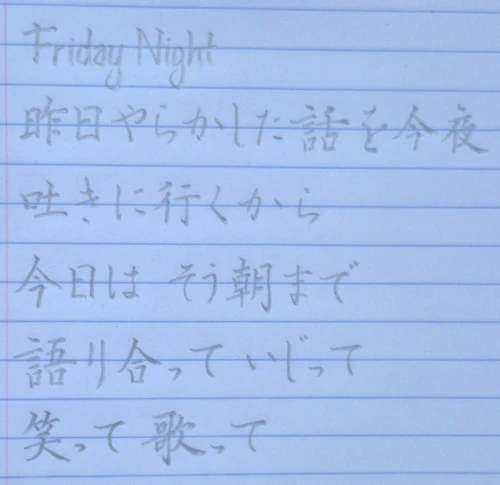 Friday Night
昨日やらかした話を今夜
吐きに行くから
今日は そう朝まで
語り合って いじって
笑って 歌って